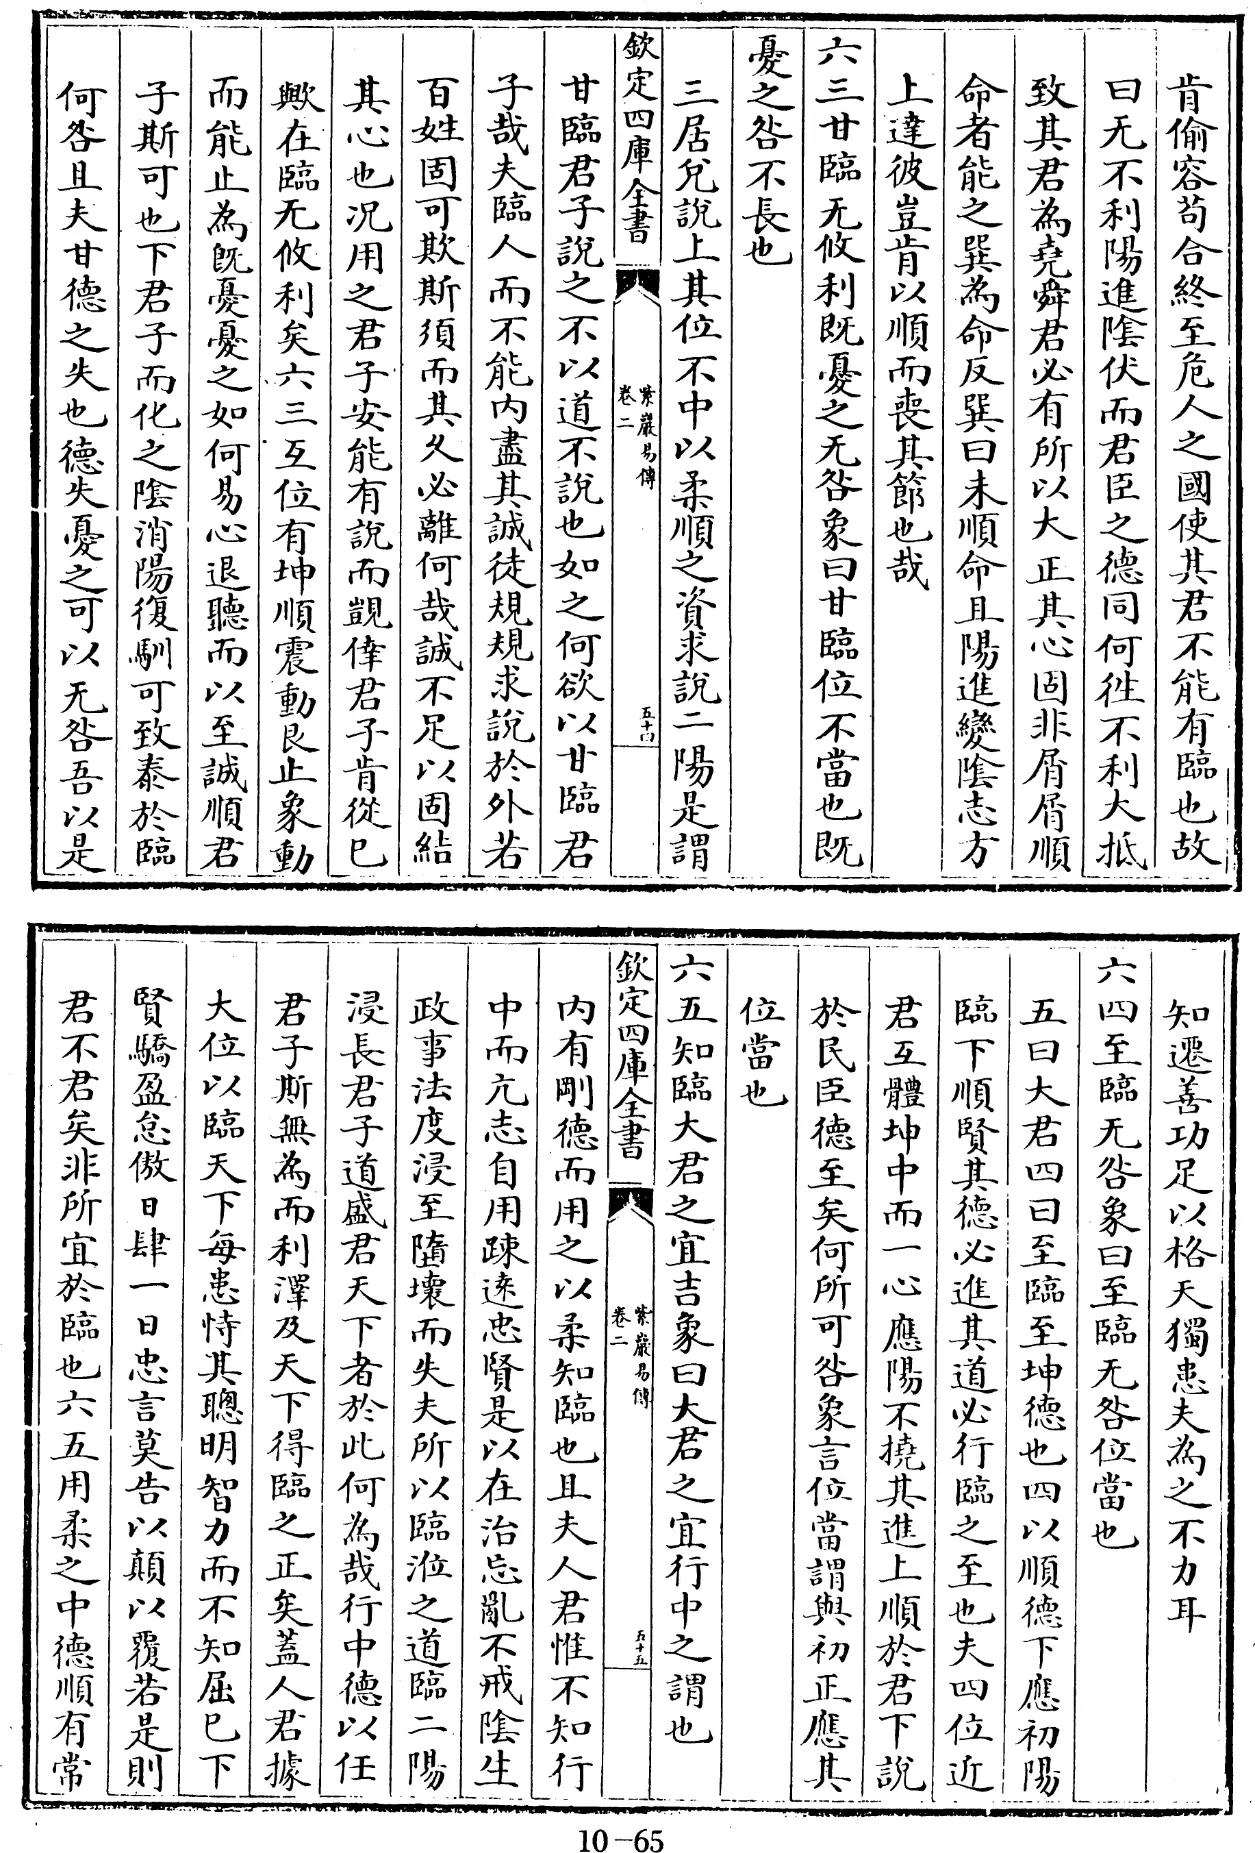 肯偷容苟合終至危人之國使其君不能有臨也故
曰无不利陽進陰伏而君臣之德同何徃不利大抵
致其君為堯舜君必有所以大正其心固非屑屑順
命者能之巽為命反巽曰未順命且陽進變陰志方
上達彼豈肯以順而喪其節也哉
六三甘臨无攸利既憂之无咎象曰甘臨位不當也既
憂之咎不長也
三居兌說上其位不中以柔順之資求說二陽是謂
欽定四庫全書
紫巖易傳
卷二
五十四
甘臨君子說之不以道不說也如之何欲以甘臨君
子哉夫臨人而不能内盡其誠徒規規求說於外若
百姓固可欺斯須而其久必離何哉誠不足以固結
其心也况用之君子安能有說而覬倖君子肯從已
歟在臨无攸利矣六三互位有坤順震動艮止象動
而能止為既憂憂之如何易心退聽而以至誠順君
子斯可也下君子而化之陰消陽復馴可致泰於臨
何咎且夫甘德之失也德失憂之可以无咎吾以是
知遷善功足以格天獨患夫為之不力耳
六四至臨无咎象曰至臨无咎位當也
五曰大君四曰至臨至坤德也四以順德下應初陽
臨下順賢其德必進其道必行臨之至也夫四位近
君互體坤中而一心應陽不撓其進上順於君下說
於民臣德至矣何所可咎象言位當謂與初正應其
位當也
六五知臨大君之宜吉象曰大君之宜行中之謂也
欽定四庫全書
紫巖易傳
卷二
五十五
内有剛德而用之以柔知臨也且夫人君惟不知行
中而亢志自用踈逺忠賢是以在治忘亂不戒陰生
政事法度浸至隳壞而失夫所以臨涖之道臨二陽
浸長君子道盛君天下者於此何為哉行中德以任
君子斯無為而利澤及天下得臨之正矣蓋人君據
大位以臨天下每患恃其聰明智力而不知屈已下
賢驕盈怠傲日肆一日忠言莫告以顛以覆若是則
君不君矣非所宜於臨也六五用柔之中德順有常
10-65